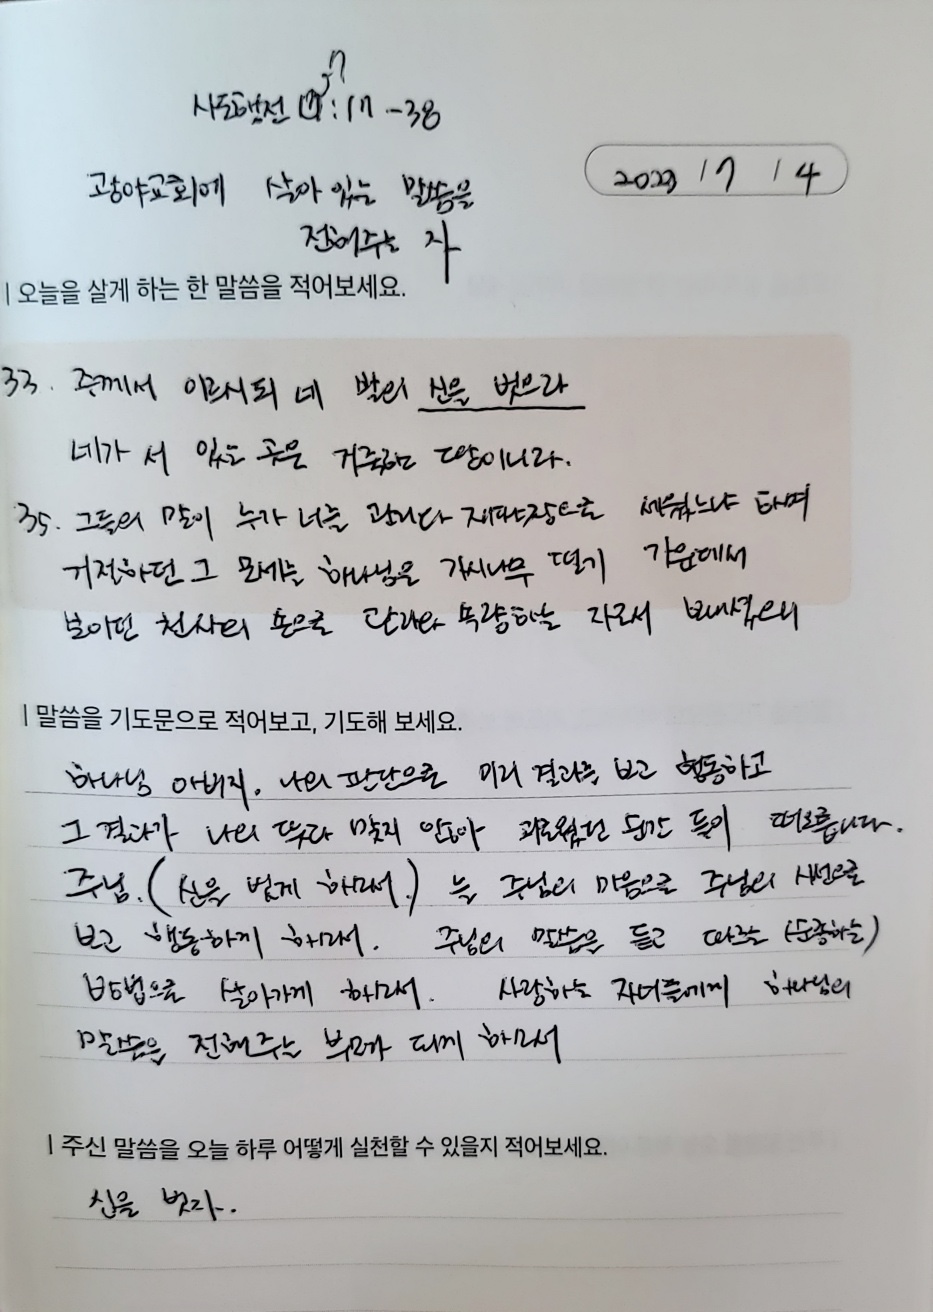 7
사도행전 :17-38
2023 / 7 / 4
광야교회에 살아 있는 말씀을
전해주는 자
| 오늘을 살게 하는 한 말씀을 적어보세요.
33. 주께서 이르시되 네 발의 신을 벗으라
네가 서 있는 곳은 거룩한 땅이니라.
35. 그들의 말이 누가 너를 관리와 재판장으로 세웠느냐 하며
거절하던 그 모세는 하나님은 가시나무 떨기 가운데서
보이던 천사의 손으로 관리와 속량하는 자로서 보내셨으니
| 말씀을 기도문으로 적어보고, 기도해 보세요.
하나님 아버지. 나의 판단으로 미리 결과를 보고 행동하고
그 결과가 나의 뜻과 맞지 않아 괴로웠던 순간 들이 떠오릅니다.
주님. (신을 벗게 하여서.) 늘 주님의 마음으로 주님의 시선으로
보고 행동하게 하여서. 주님의 말씀을 듣고 따르는 (순종하는)
방법으로 살아가게 하여서. 사랑하는 자녀들에게 하나님의
말씀을 전해주는 부모가 되게 하여서
| 주신 말씀을 오늘 하루 어떻게 실천할 수 있을지 적어보세요.
신을 벗자.